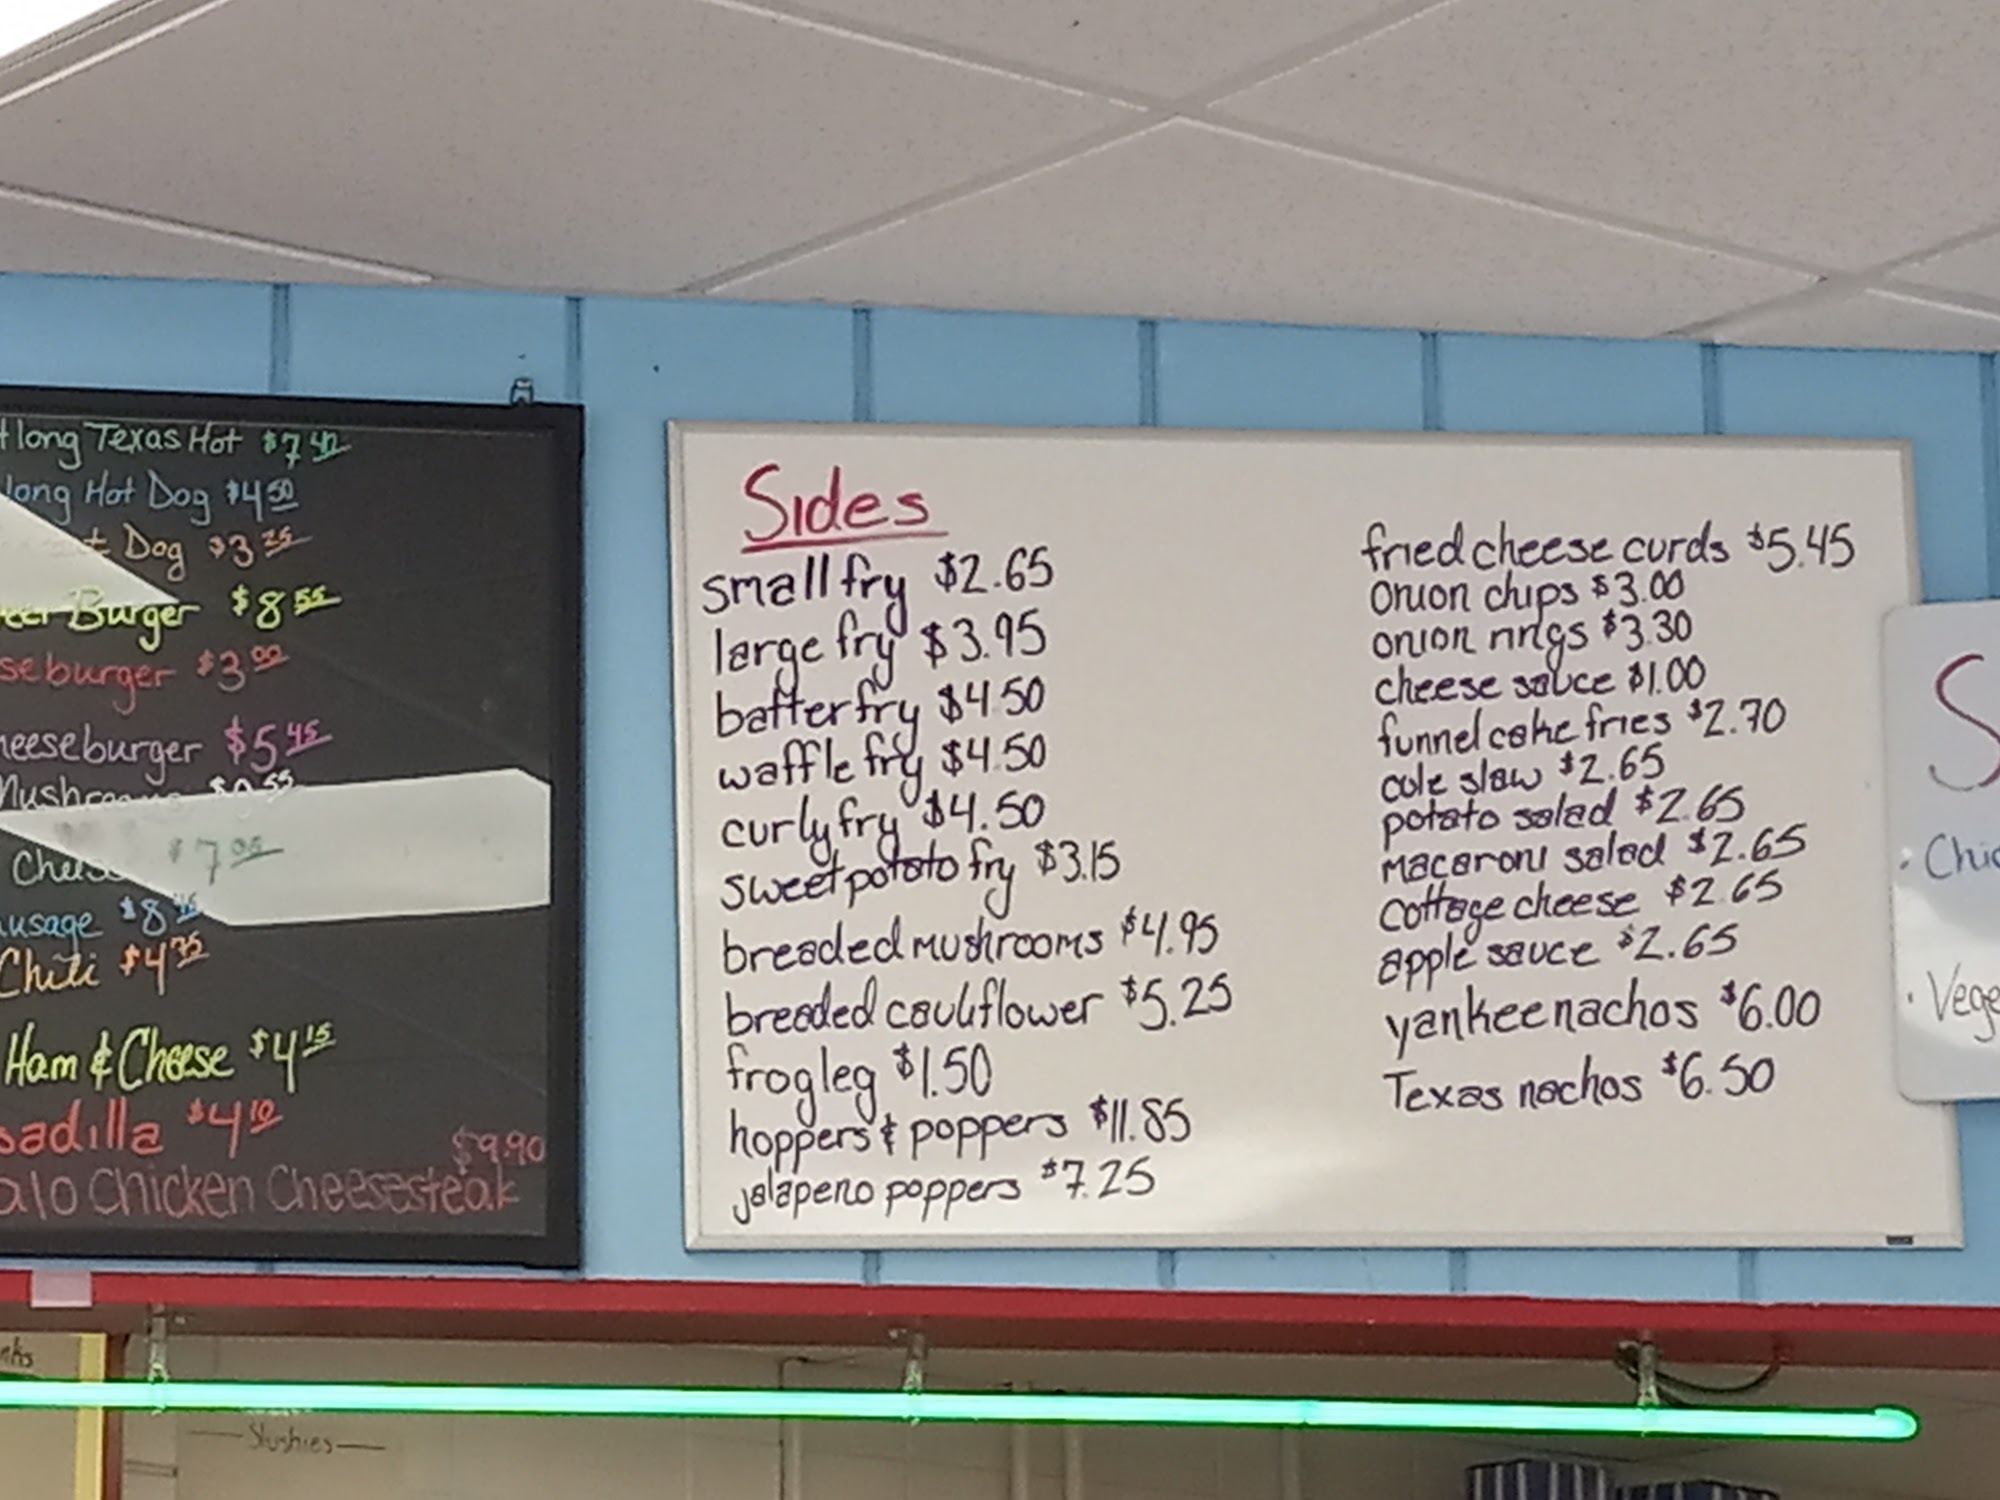 long Texas Hot $7.40
long Hot Dog $4.50
Dog $3.25
Burger $8.55
$3.00
$5.45
$0.55
$7.00
$8
Chili $4.75
Ham & Cheese $4.15
$4.10
$9.90
Chicken Cheesesteak
Sides
small fry $2.65
large fry $3.95
batter fry $4.50
waffle fry $4.50
curly fry $4.50
sweet potato fry $3.15
breaded mushrooms $4.95
breaded cauliflower $5.25
frog leg $1.50
hoppers & poppers $11.85
jalapeno poppers $7.25
fried cheese curds $5.45
onion chips $3.00
onion rings $3.30
cheese sauce $1.00
funnel cake fries $2.70
cole slaw $2.65
potato salad $2.65
macaroni salad $2.65
cottage cheese $2.65
apple sauce $2.65
yankee nachos $6.00
Texas nachos $6.50
Slushies